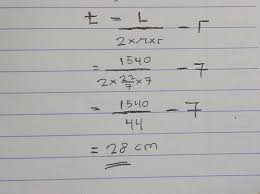 t = L / 2×π×r - r
= 1540 / 2 × 22/7 × 7 - 7
= 1540 / 44 - 7
= 28 cm